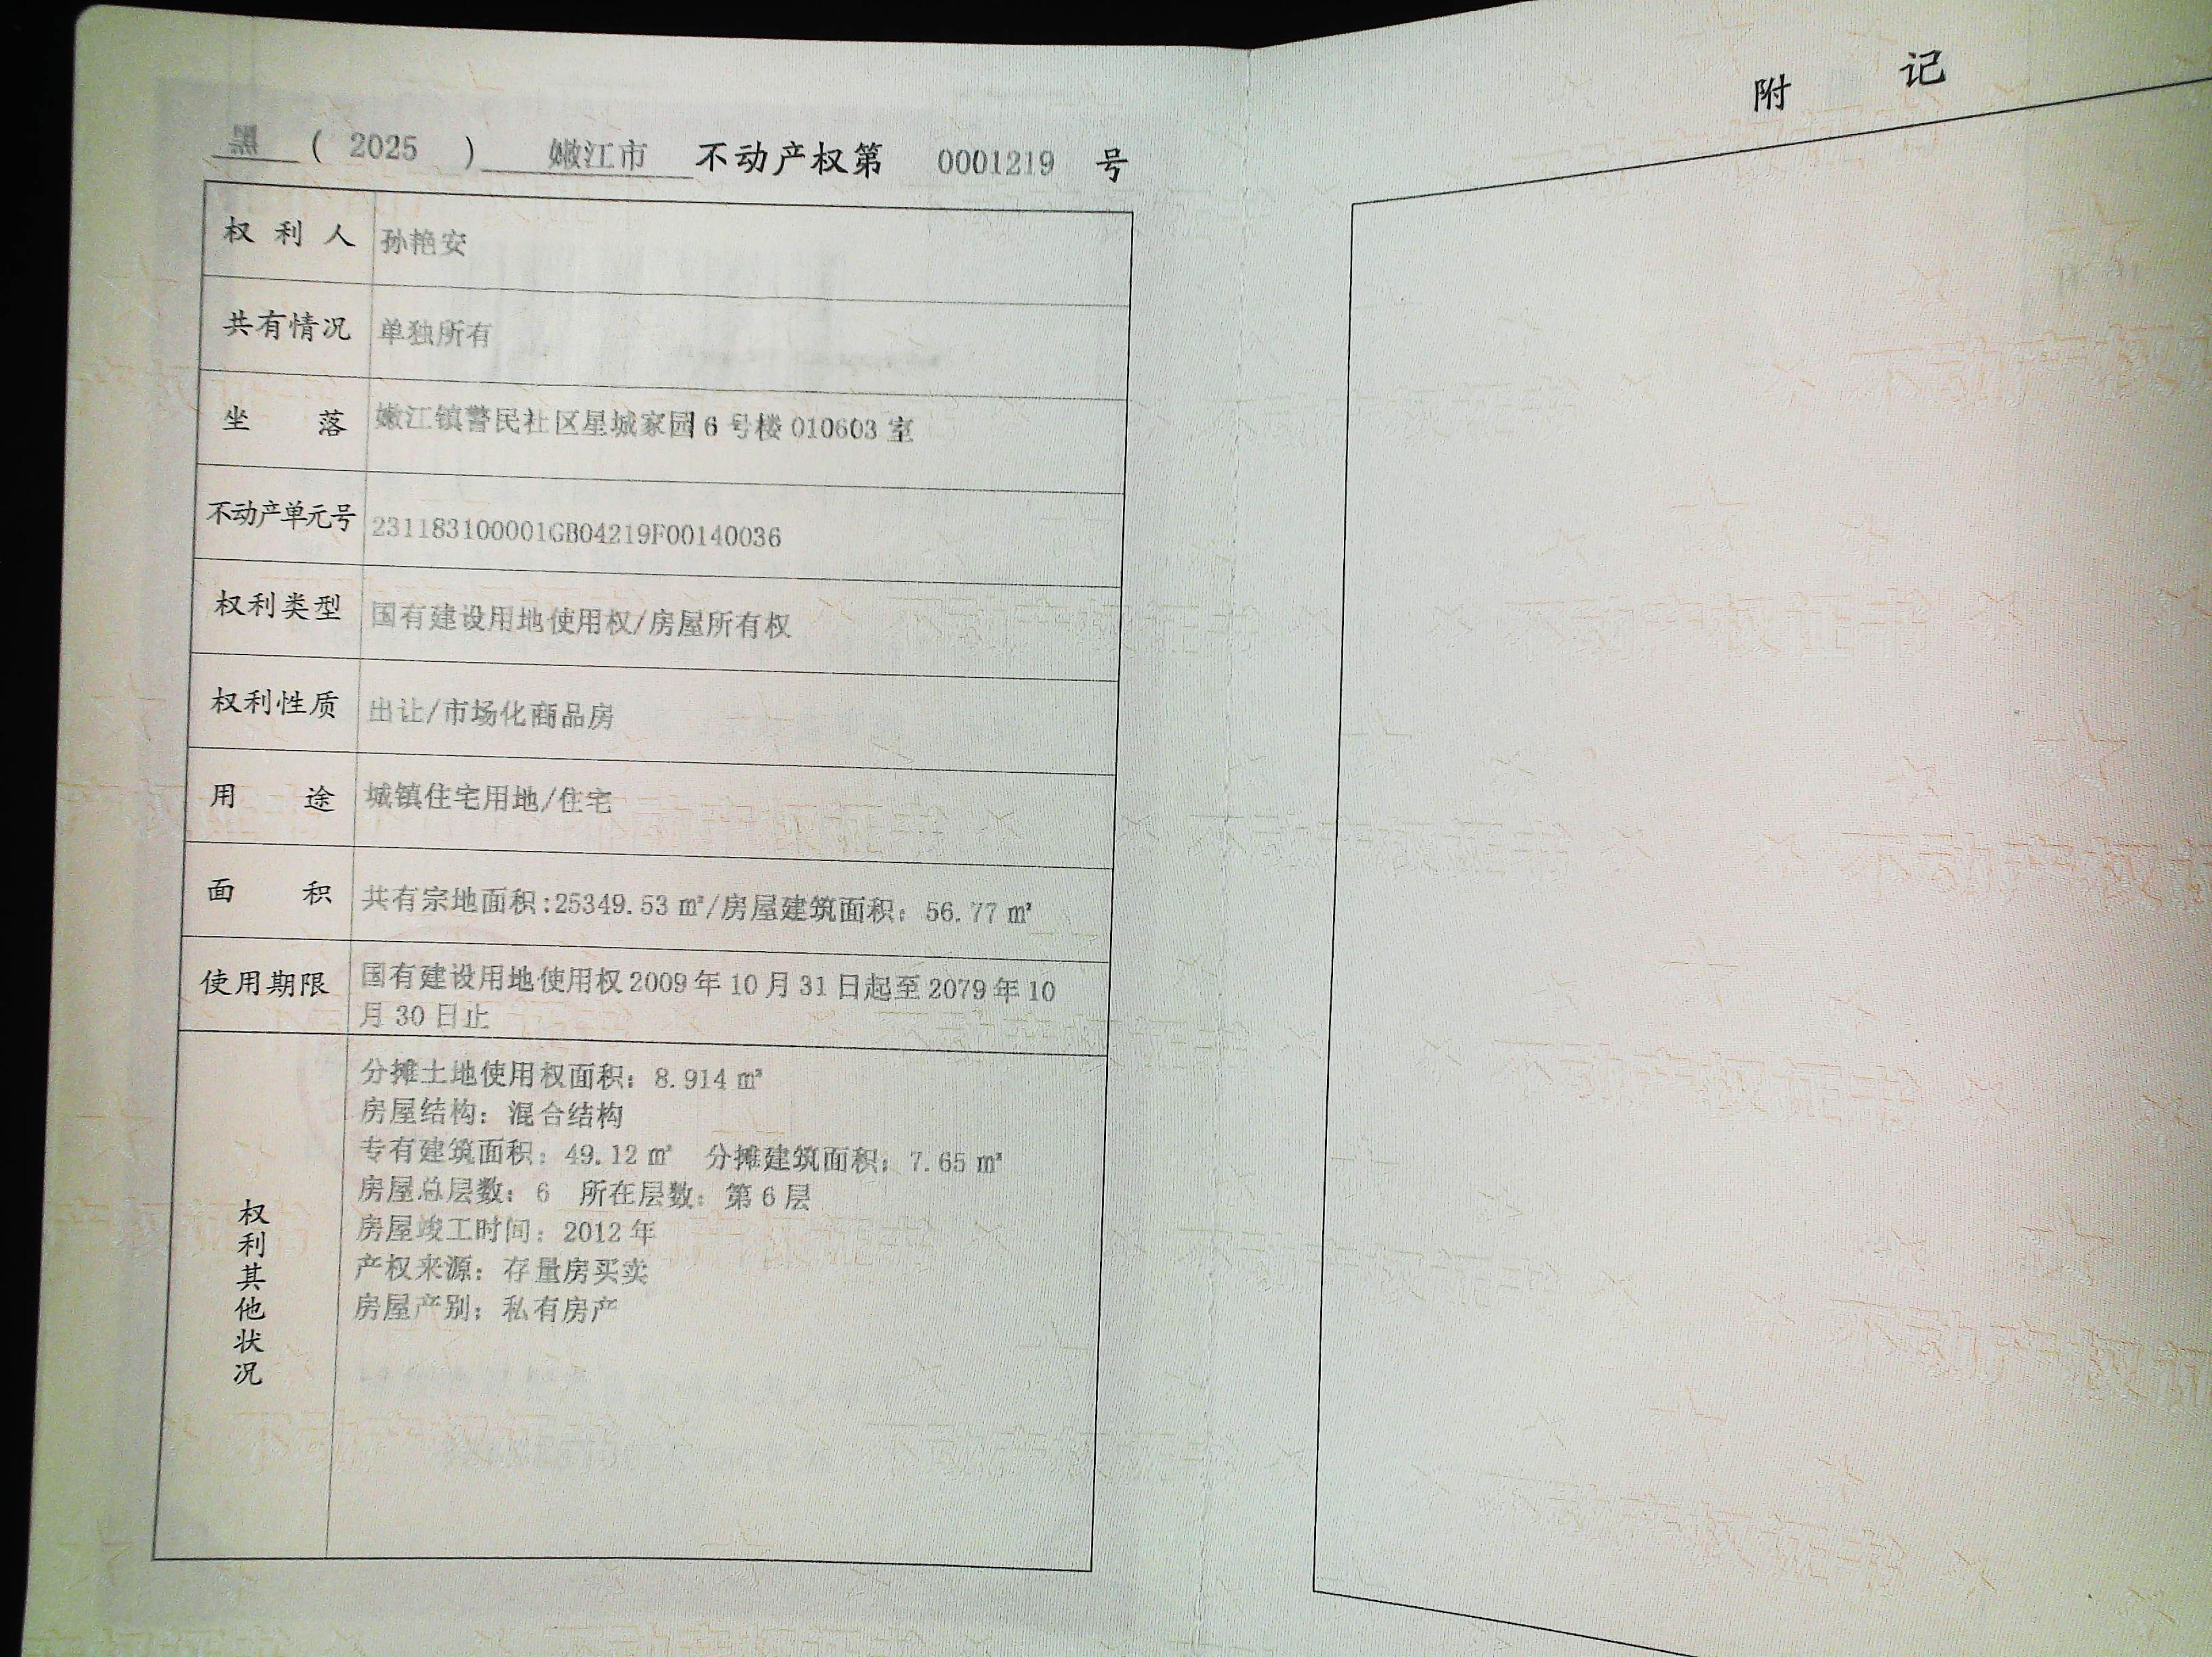 黑 ( 2025 ) 嫩江市 不动产权第 0001219 号
权利人 孙艳安
共有情况 单独所有
坐落 嫩江镇警民社区星城家园6号楼010603室
不动产单元号 231183100001GB04219F00140036
权利类型 国有建设用地使用权/房屋所有权
权利性质 出让/市场化商品房
用途 城镇住宅用地/住宅
面积 共有宗地面积:25349.53㎡/房屋建筑面积:56.77㎡
使用期限 国有建设用地使用权2009年10月31日起至2079年10
月30日止
权利其他状况
分摊土地使用权面积:8.914㎡
房屋结构:混合结构
专有建筑面积:49.12㎡ 分摊建筑面积:7.65㎡
房屋总层数:6 所在层数:第6层
房屋竣工时间:2012年
产权来源:存量房买卖
房屋产别:私有房产
附记